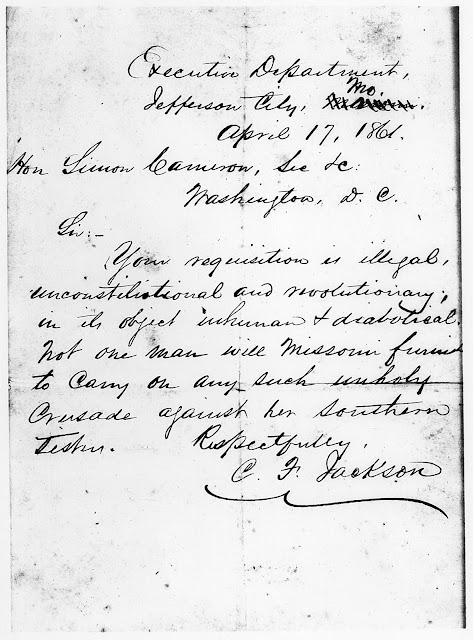 Executive Department,
Jefferson City, Mo.
April 17, 1861.
Hon Simon Cameron, Sec &c.
Washington, D. C.
Sir:-
Your requisition is illegal,
unconstitutional and revolutionary;
in its object inhuman & diabolical.
Not one man will Missouri furnish
to carry on any such unholy
Crusade against her southern
sisters. Respectfully,
C. F. Jackson